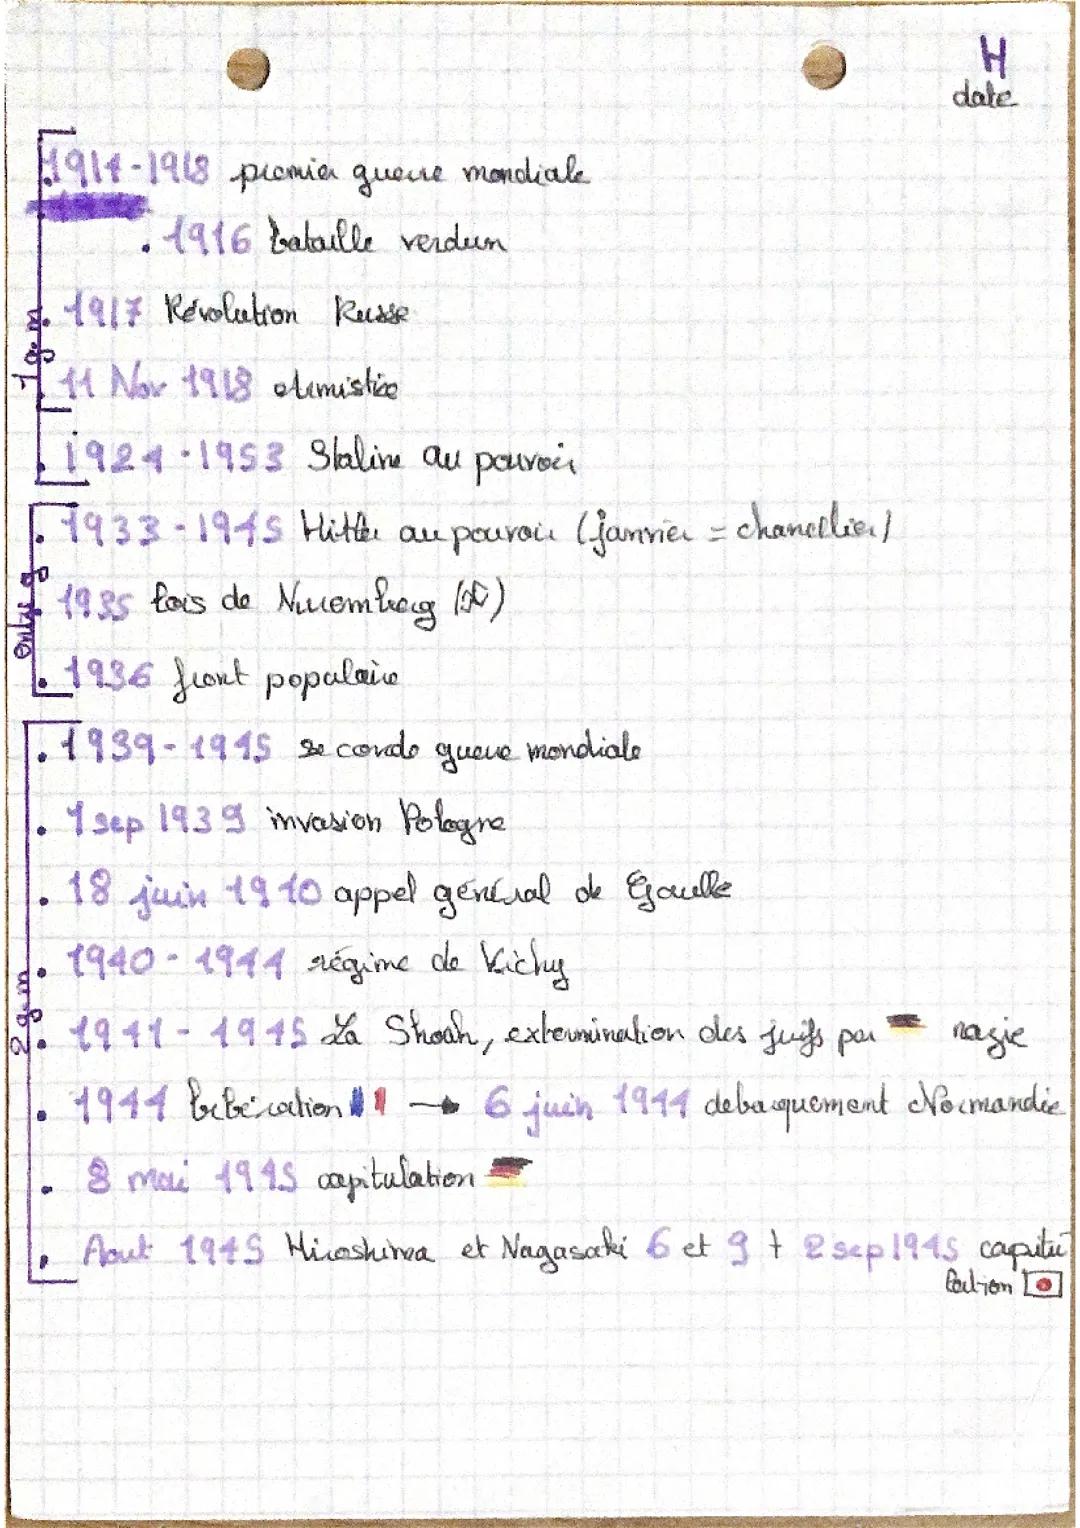 H
date
1914-1918 premier guerre mondiale
. 1916 bataille verdun
. 1917 Révolution Russe
1 g.m
. 11 Nov 1918 armistice
. 1924-1953 Staline au pouvoir
. 1933-1945 Hitler au pouvoir (janvier = chancellier)
Entre g
. 1935 lois de Nuremberg
. 1936 front populaire
. 1939-1945 seconde guerre mondiale
. 1 sep 1939 invasion Pologne
. 18 juin 1940 appel général de Gaulle
. 1940-1944 régime de Vichy
2 g.m
. 1941-1945 La Shoah, extermination des juifs par nazie
. 1944 libération → 6 juin 1944 debarquement Normandie
. 8 mai 1945 capitulation
. Aout 1945 Hiroshima et Nagasaki 6 et 9 + 2 sep 1945 capitu
lation